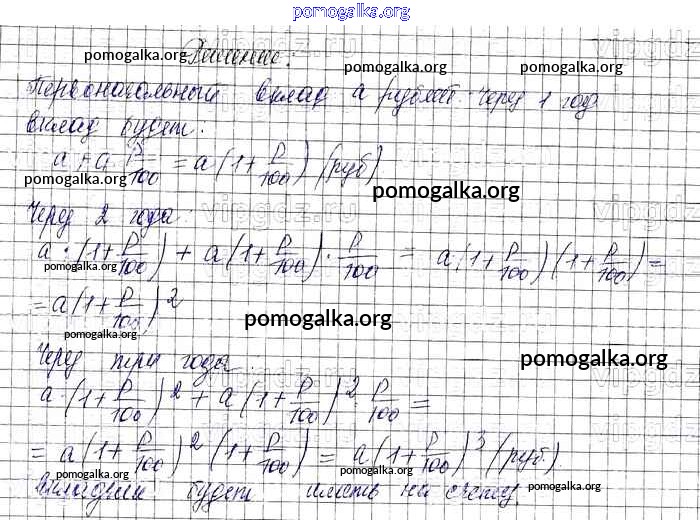 pomogalka.org
Решение:
pomogalka.org pomogalka.org pomogalka.org
Первоначальный вклад a рублей. Через 1 год
вклад будет:
a + a · p/100 = a(1+p/100) (руб)
pomogalka.org pomogalka.org
Через 2 года vipgdz.ru vipgdz
a·(1+p/100) + a(1+p/100)·p/100 = a(1+p/100)(1+p/100)=
pomogalka.org pomogalka.org
= a(1+p/100)²
pomogalka.org pomogalka.org
Через три года pomogalka.org
a·(1+p/100)² + a(1+p/100)²·p/100 =
= a(1+p/100)²(1+p/100) = a(1+p/100)³ (руб).
pomogalka.org pomogalka.org pomogalka.org
вкладчик будет иметь на счету. pomogalka.org